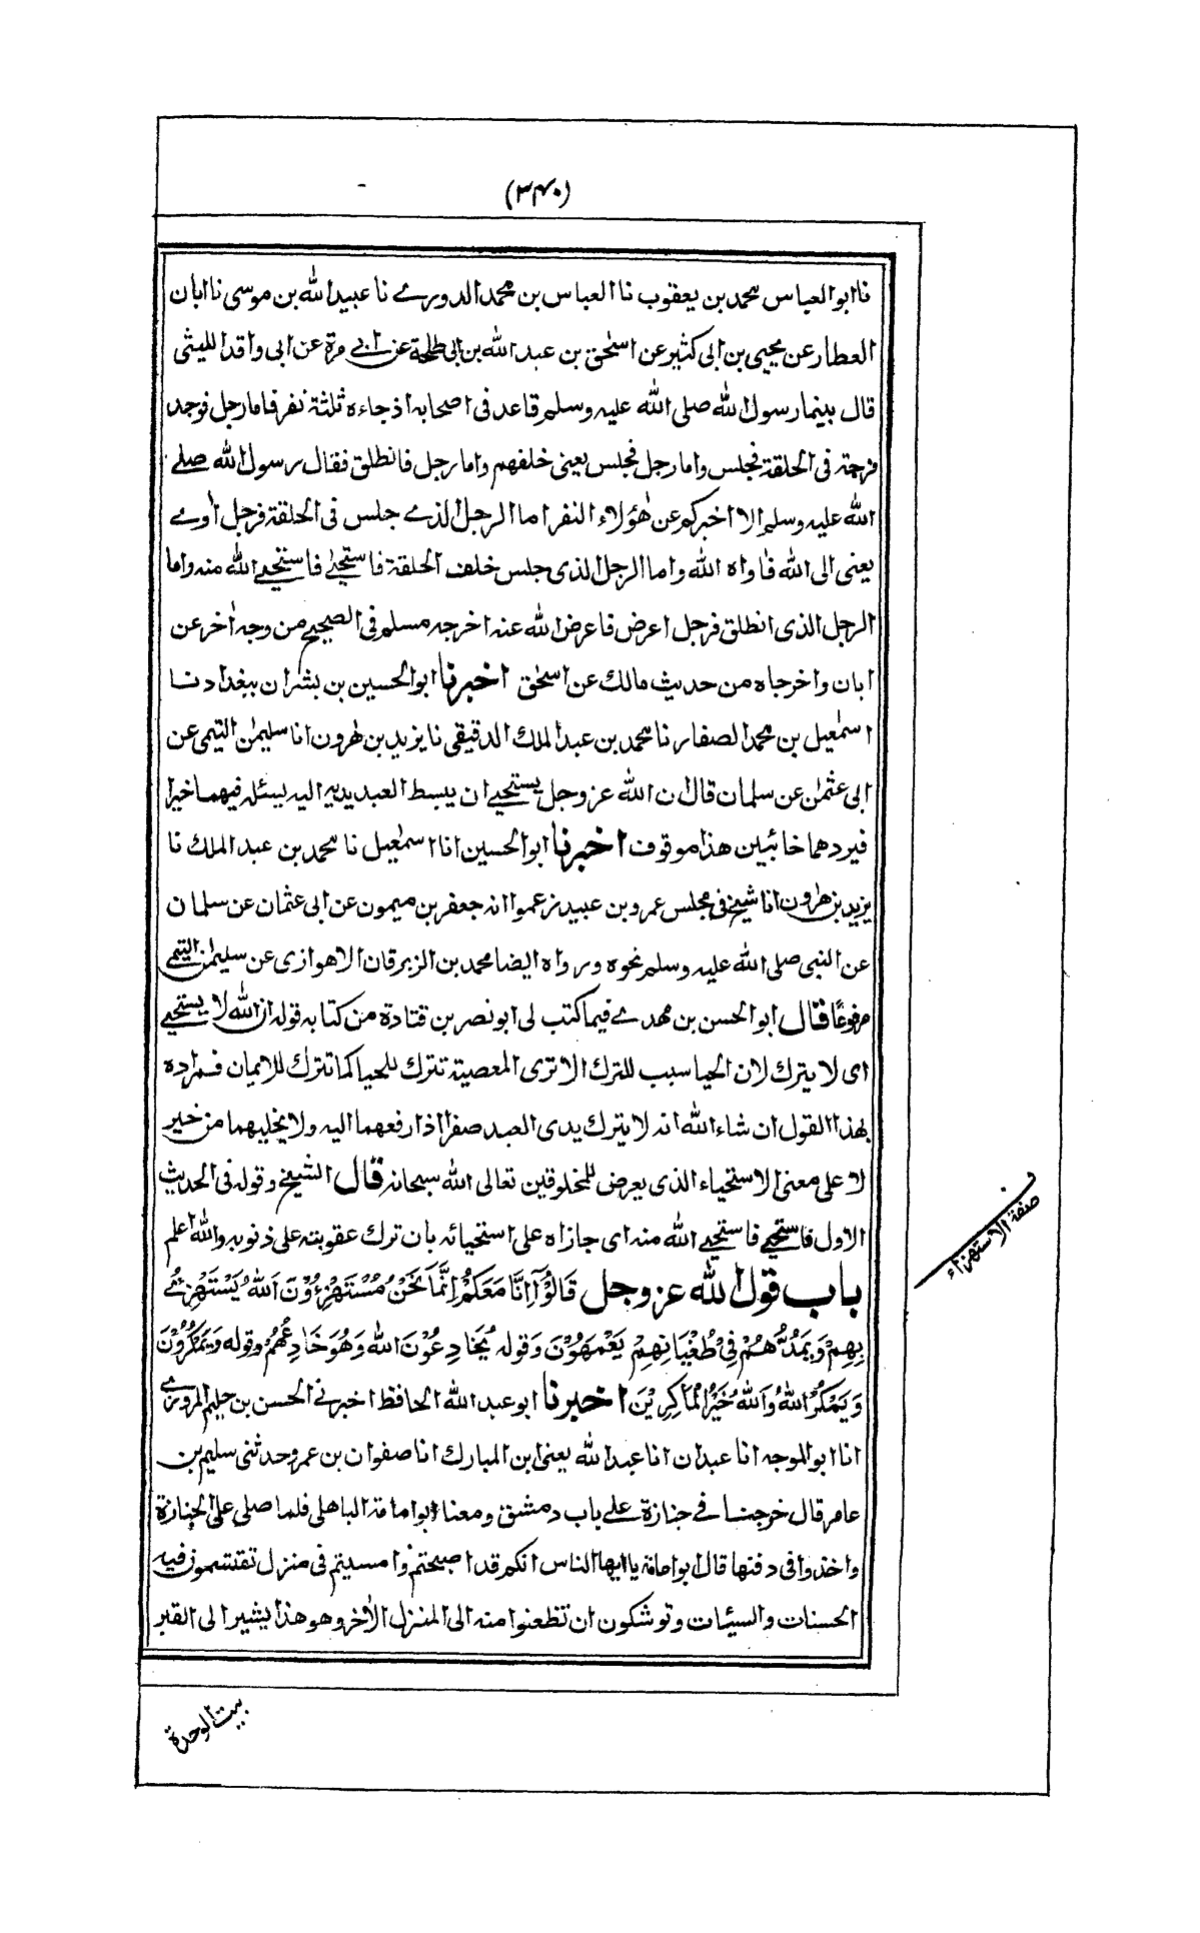 (۳۴۰)
نا ابو العباس محمد بن يعقوب نا العباس بن محمد الدورے نا عبيد الله بن موسى نا ابان
العطار عن يحيى بن ابى كثير عن اسحٰق بن عبد الله بن ابى طلحة عن ابے مرة عن ابى واقد الليثى
قال بينما رسول الله صلى الله عليه وسلم قاعد فى اصحابه اذ جاءه ثلثة نفر فاما رجل فوجد
فرجة فى الحلقة فجلس واما رجل فجلس يعنى خلفهم واما رجل فانطلق فقال رسول الله صلے
الله عليه وسلم الا اخبركم عن هٰؤلاء النفر اما الرجل الذے جلس فى الحلقة فرجل اٰوے
يعنى الى الله فاٰواه الله واما الرجل الذى جلس خلف الحلقة فاستحيٰے فاستحيے الله منه واما
الرجل الذى انطلق فرجل اعرض فاعرض الله عنه اخرجه مسلم فى الصحيح من وجه اٰخر عن
ابان واخرجاه من حديث مالك عن اسحٰق اخبرنا ابو الحسين بن بشران ببغداد نا
اسمٰعيل بن محمد الصفار نا محمد بن عبد الملك الدقيقى نا يزيد بن هٰرون انا سليمٰن التيمى عن
ابى عثمٰن عن سلمان قال ان الله عز وجل يستحيے ان يبسط العبد يديه اليه يسئله فيهما خيرا
فيردهما خائبين هذا موقوف اخبرنا ابو الحسين انا اسمٰعيل نا محمد بن عبد الملك نا
يزيد بن هٰرون انا شيخ فى مجلس عمرو بن عبيد زعموا انه جعفر بن ميمون عن ابى عثمان عن سلمان
عن النبى صلى الله عليه وسلم نحوه ورواه ايضا محمد بن الزبرقان الاهوازى عن سليمٰن التيمے
مرفوعًا قال ابو الحسن بن مهدے فيما كتب لى ابو نصر بن قتادة من كتابه قوله ان الله لا يستحيے
اى لا يترك لان الحيا سبب للترك الا ترى المعصية تترك للحيا كما تترك للايمان فمراده
بهذا القول ان شاء الله انه لا يترك يدى العبد صفرا اذا رفعهما اليه ولا يخليهما من خير
لا على معنى الاستحياء الذى يعرض للمخلوقين تعالى الله سبحانه قال الشيخ وقوله فى الحديث
الاول فاستحيے فاستحيے الله منه اى جازاه على استحيائه بان ترك عقوبته على ذنوبه والله اعلم
باب قول الله عز وجل قَالُوْٓا اِنَّا مَعَكُمْ اِنَّمَا نَحْنُ مُسْتَهْزِءُوْنَ اَللهُ يَسْتَهْزِئُ
بِهِمْ وَيَمُدُّهُمْ فِيْ طُغْيَانِهِمْ يَعْمَهُوْنَ وَقوله يُخَادِعُوْنَ اللهَ وَهُوَ خَادِعُهُمْ وقوله وَيَمْكُرُوْنَ
وَيَمْكُرُ اللهُ وَاللهُ خَيْرُ الْمَاكِرِيْنَ اخبرنا ابو عبد الله الحافظ اخبرنے الحسن بن حليم المروزے
انا ابو الموجه انا عبدان انا عبد الله يعنى ابن المبارك انا صفوان بن عمرو حدثنى سليم بن
عامر قال خرجنا فے جنازة علے باب دمشق ومعنا ابو امامة الباهلى فلما صلى على الجنازة
واخذوا فى دفنها قال ابو امامة يا ايها الناس انكم قد اصبحتم وامسيتم فى منزل تقتسمون فيه
الحسنات والسيئات وتوشكون ان تظعنوا منه الى المنزل الاٰخر وهو هذا يشير الى القبر
صفة الاستهزاء
بيت الوحدة